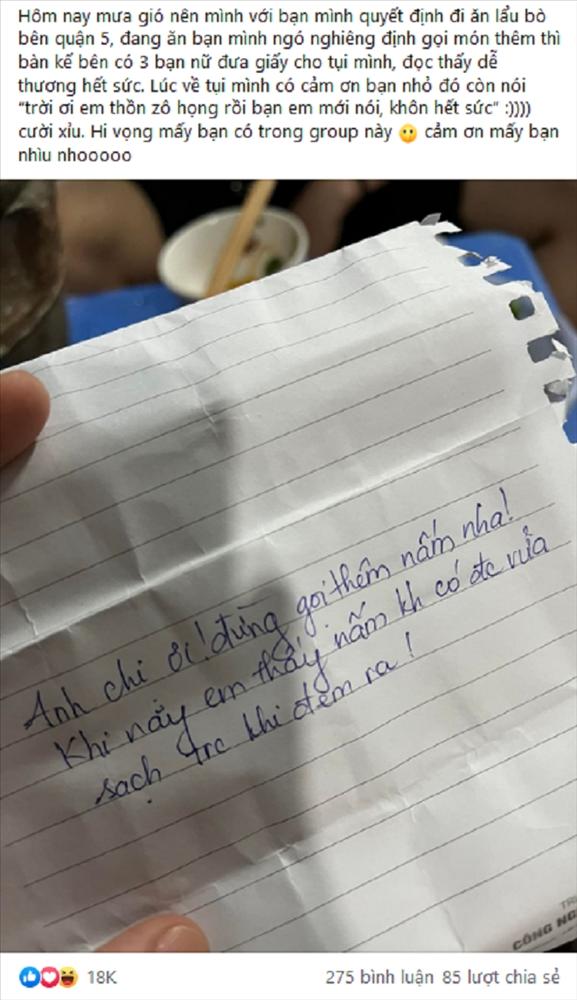 Hôm nay mưa gió nên mình với bạn mình quyết định đi ăn lẩu bò
bên quận 5, đang ăn bạn mình ngó nghiêng định gọi món thêm thì
bàn kế bên có 3 bạn nữ đưa giấy cho tụi mình, đọc thấy dễ
thương hết sức. Lúc về tụi mình có cảm ơn bạn nhỏ đó còn nói
“trời ơi em thồn zô họng rồi bạn em mới nói, khôn hết sức” :))))
cười xỉu. Hi vọng mấy bạn có trong group này 😶 cảm ơn mấy bạn
nhìu nhooooo
Anh chị ơi! đừng gọi thêm nấm nha!
Khi nãy em thấy nấm kh có đc rửa
sạch trc khi đem ra!
CÔNG NG
18K
275 bình luận 85 lượt chia sẻ